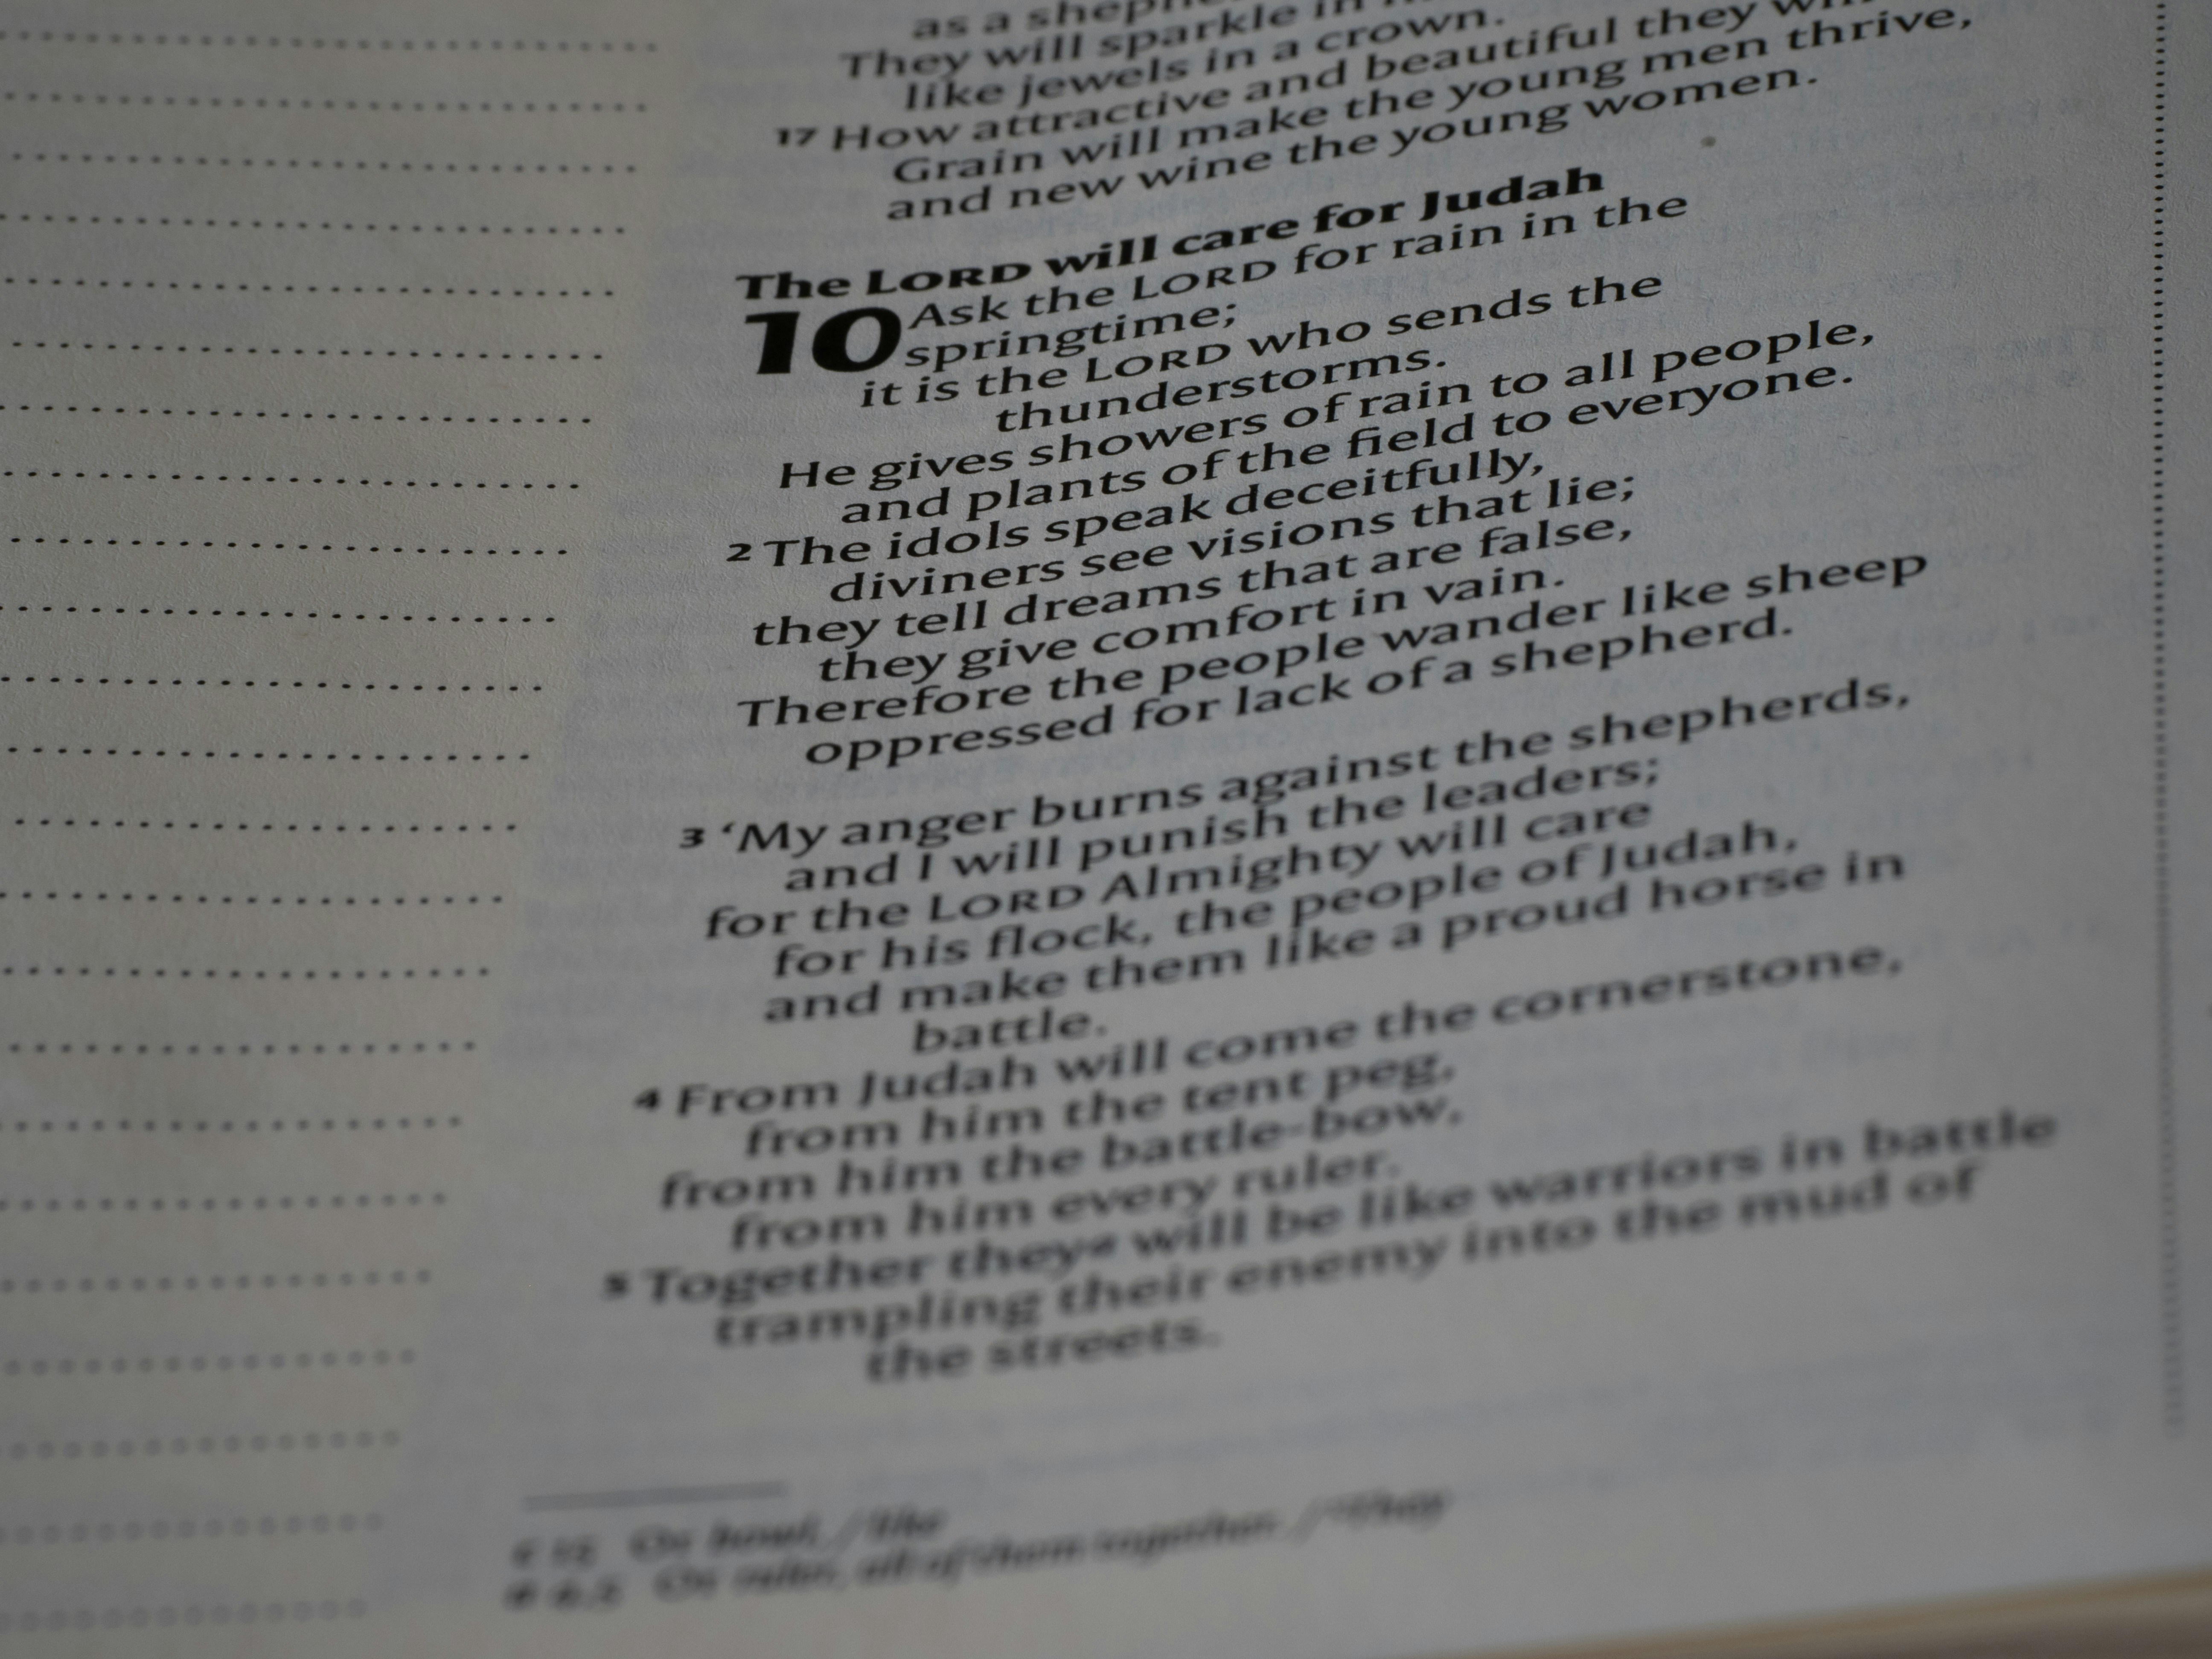 as a
They will sparkle in
like jewels in a crown.
17 How attractive and beautiful they
Grain will make the young men thrive,
and new wine the young women.
The LORD will care for Judah
10 Ask the LORD for rain in the
springtime;
it is the LORD who sends the
thunderstorms.
He gives showers of rain to all people,
and plants of the field to everyone.
2 The idols speak deceitfully,
diviners see visions that lie;
they tell dreams that are false,
they give comfort in vain.
Therefore the people wander like sheep
oppressed for lack of a shepherd.
3 ‘My anger burns against the shepherds,
and I will punish the leaders;
for the LORD Almighty will care
for his flock, the people of Judah,
and make them like a proud horse in
battle.
4 From Judah will come the cornerstone,
from him the tent peg,
from him the battle-bow,
from him every ruler.
5 Together they will be like warriors in battle
trampling their enemy into the mud of
the streets.
15 Or bowl, / like
Or ruler, all of them together. / They